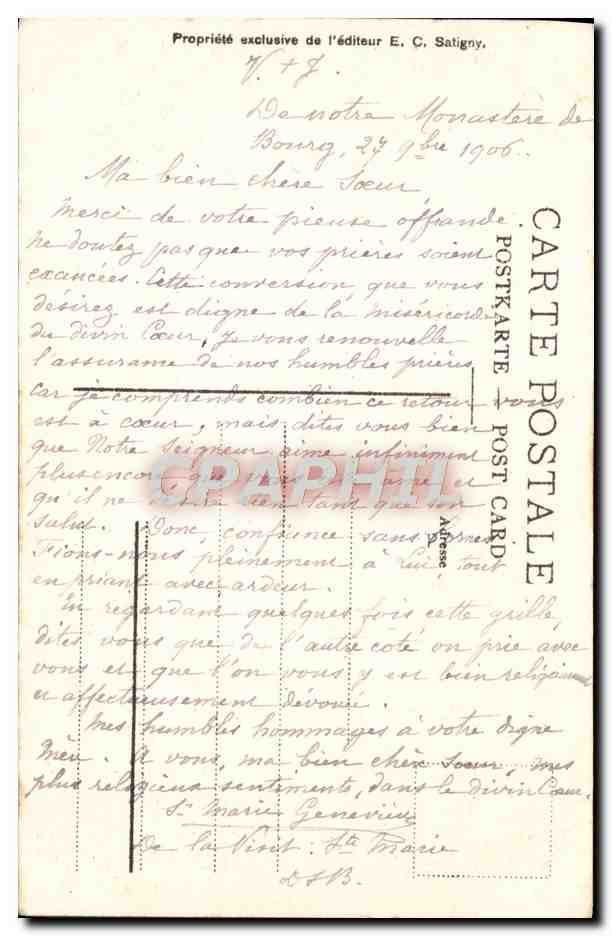 Propriété exclusive de l'éditeur E. C. Satigny.
V. + J.
De notre Monastère de
Bourg, 27 9bre 1906.
Ma bien chère Sœur
Merci de votre pieuse offrande.
Ne doutez pas que vos prières soient
exaucées. Cette conversion que vous
désirez est digne de la miséricorde
du divin Cœur, Je vous renouvelle
l'assurance de nos humbles prières
car je comprends combien ce retour vous
est à cœur, mais dites vous bien
que Notre Seigneur aime infiniment
plus encore que vous âme et
qu'il ne désire rien tant que son
salut. Donc, confiance sans bornes
Fions-nous pleinement à Lui, tout
en priant avec ardeur.
En regardant quelques fois cette grille,
dites vous que de l'autre côté on prie avec
vous et que l'on vous y est bien religieusement
et affectueusement dévouée.
Mes humbles hommages à votre digne
Mère. A vous, ma bien chère Sœur, mes
plus religieux sentiments, dans le divin Cœur.
Sr Marie Geneviève
De la Visit. Ste Marie
D.S.B.
CARTE POSTALE
POSTKARTE — POST CARD
Adresse
CPAPHIL